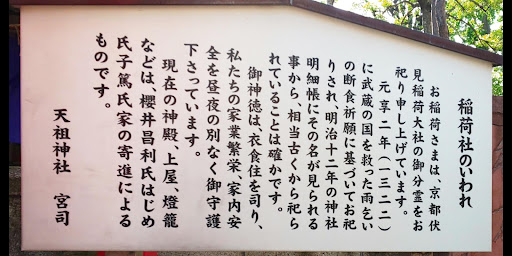 稲荷社のいわれ
お稲荷さまは、京都伏
見稲荷大社の御分霊をお
祀り申し上げています。
元亨二年(一三二二)
に武蔵の国を救った雨乞い
の断食祈願に基づいてお祀
りされ、明治十二年の神社
明細帳にその名が見られる
事から、相当古くから祀ら
れていることは確かです。
御神徳は、衣食住を司り、
私たちの家業繁栄、家内安
全を昼夜の別なく御守護
下さっています。
現在の神殿、上屋、燈籠
などは、櫻井昌利氏はじめ
氏子篤氏家の寄進による
ものです。
天祖神社 宮司